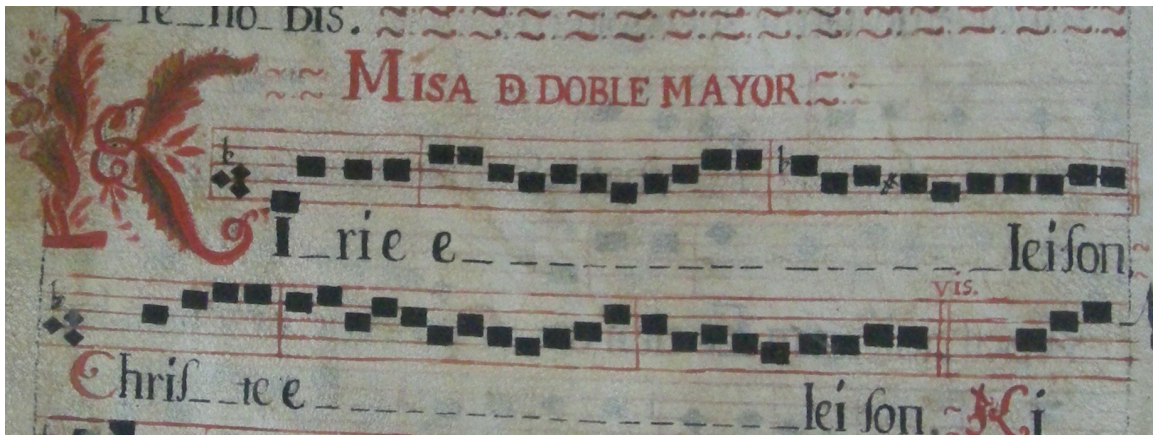 _ re_no_bis.
MISA Đ DOBLE MAYOR
KI_rie e_ _ _ _ _ _ _ _ _ _ _ _ _ _leiſon.
vis.
Chriſ_ _te e_ _ _ _ _ _ _ _ _ _ _ _ _lei ſon. Ki